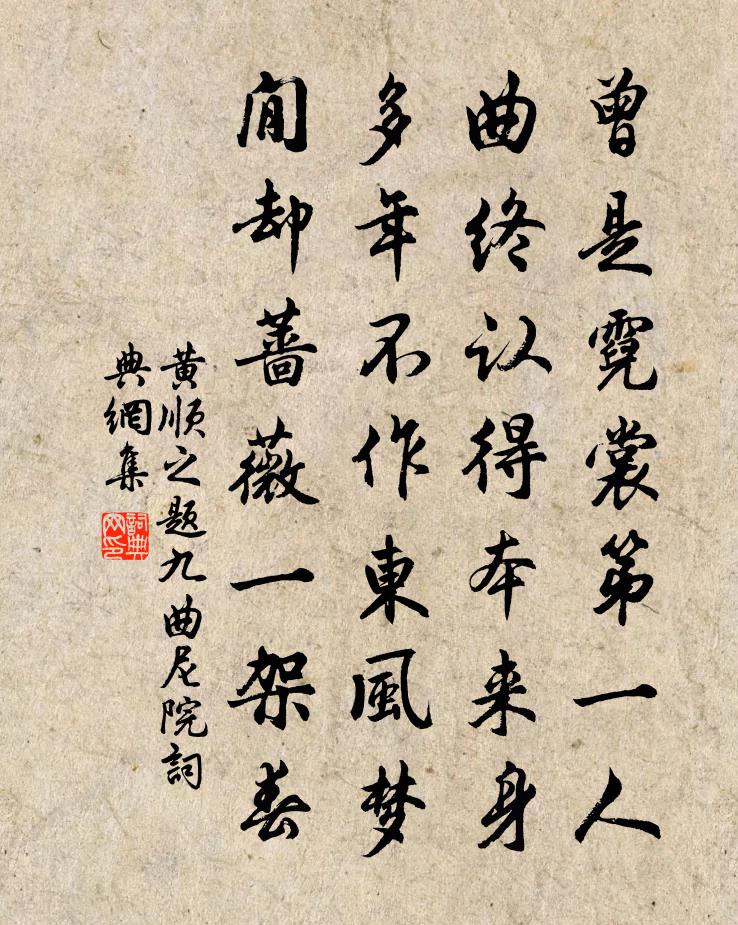 曾是霓裳第一人
曲终认得本来身
多年不作東風梦
閒却蔷薇一架春
黄順之题九曲尼院詞
典網集
詞典网印